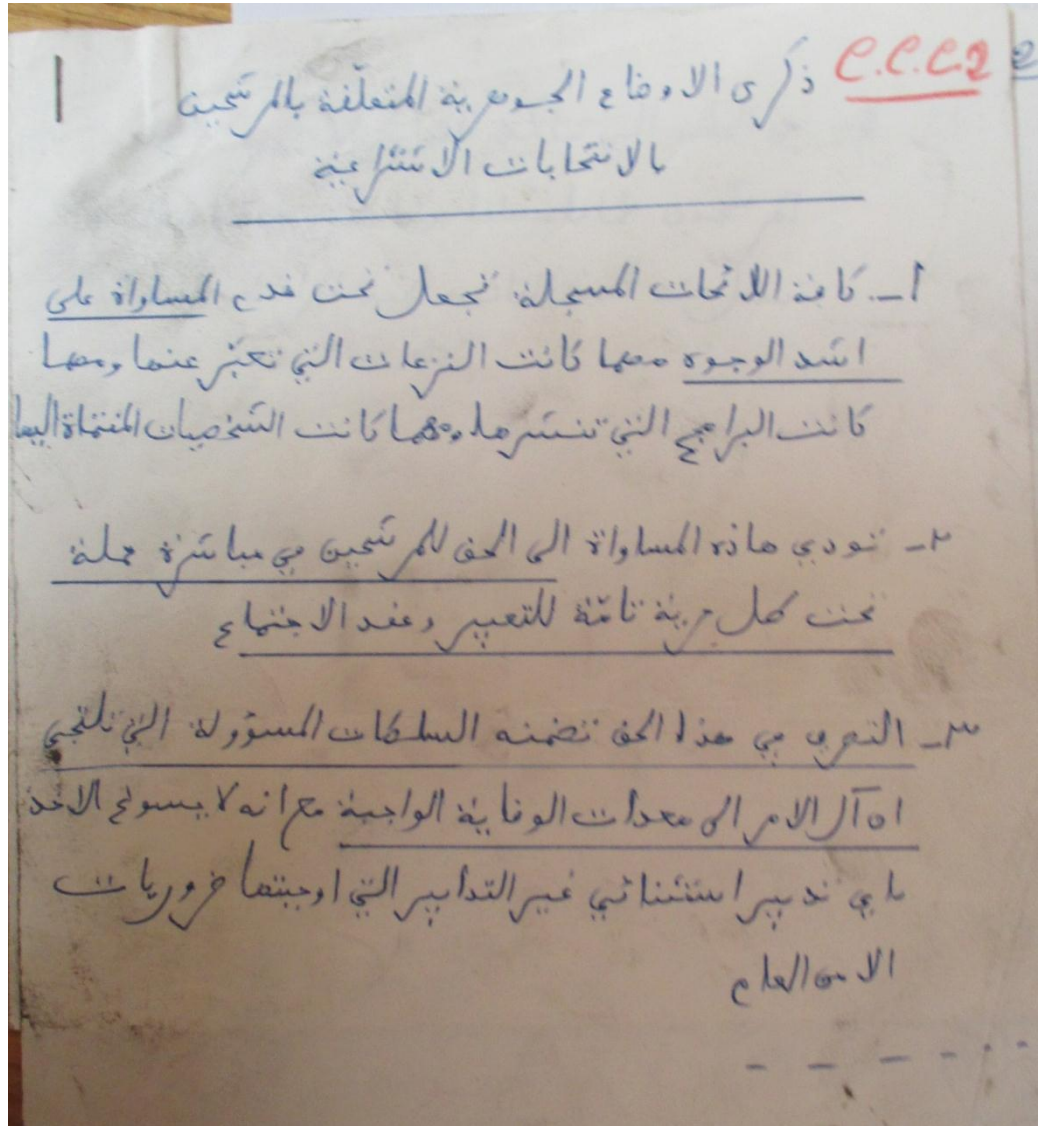 C.C.C.2
ذكرى الاوضاع الجوهرية المتعلّقة بالمرشحين
بالانتخابات الاشتراعية
١ـ كافة اللائحات المسجلة تجعل تحت قدم المساواة على
اشد الوجوه مهما كانت النزعات التي تعبّر عنها ومهما
كانت البرامج التي تنشرها ومهما كانت الشخصيات المنتماة اليها
٢ـ تودي هاذه المساواة الى الحق للمرشحين في مباشرة حملة
تحت كل حرية تامّة للتعبير وعقد الاجتماع
٣ـ التصرف في هذا الحق تضمنه السلطات المسؤولة التي تلتجي
اه آل الامر الى معدات الوقاية الواجبة مع انه لا يسوغ الاخذ
باي تدبير استثنائي غير التدابير التي اوجبتها ضروريات
الامن العام